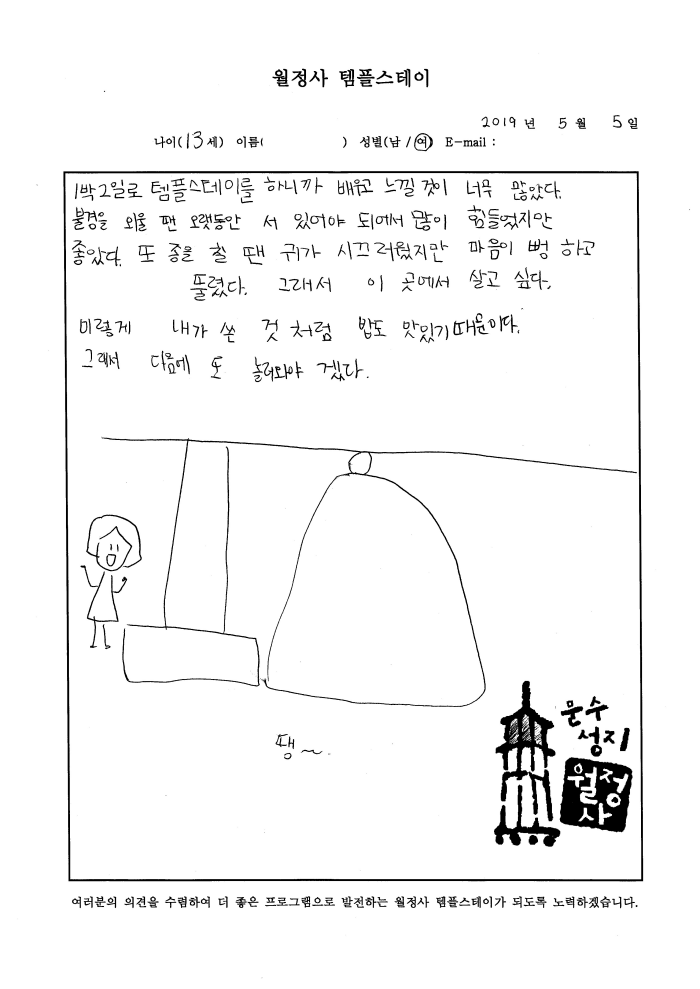 월정사 템플스테이
2019 년 5 월 5 일
나이(13세) 이름( ) 성별(남 / 여) E-mail :
1박2일로 템플스테이를 하니까 배우고 느낄것이 너무 많았다.
불경을 외울 땐 오랫동안 서 있어야 되어서 많이 힘들었지만
좋았다. 또 종을 칠 땐 귀가 시끄러웠지만 마음이 뻥 하고
뚤렸다. 그래서 이 곳에서 살고 싶다.
이렇게 내가 쓴 것 처럼 밥도 맛있기때문이다.
그래서 다음에 또 놀러와야 겠다.
땡~.
문수
성지
월정
사
여러분의 의견을 수렴하여 더 좋은 프로그램으로 발전하는 월정사 템플스테이가 되도록 노력하겠습니다.